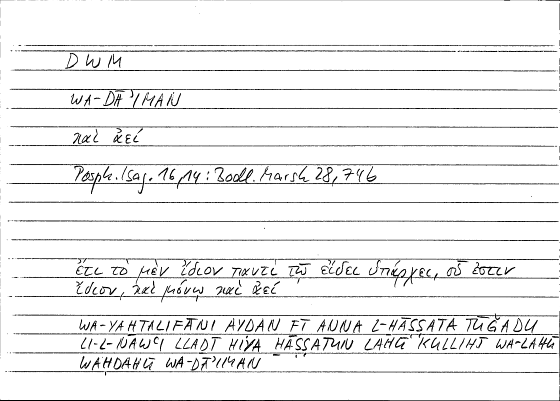 DWM
WA-DĀ'IMAN
καὶ ἀεί
Porph. Isag. 16,14: Bodl. Marsh 28, 74b
ἔτι τὸ μὲν ἴδιον παντὶ τῷ εἴδει ὑπάρχει, οὗ ἐστιν
ἴδιον, καὶ μόνῳ καὶ ἀεί
WA-YAḪTALIFĀNI AYḌAN FĪ ANNA L-ḪĀṢṢATA TŪǦADU
LI-L-NAWʿI LLAḎĪ HIYA ḪĀṢṢATUN LAHŪ KULLIHĪ WA-LAHŪ
WAḤDAHŪ WA-DĀ'IMAN